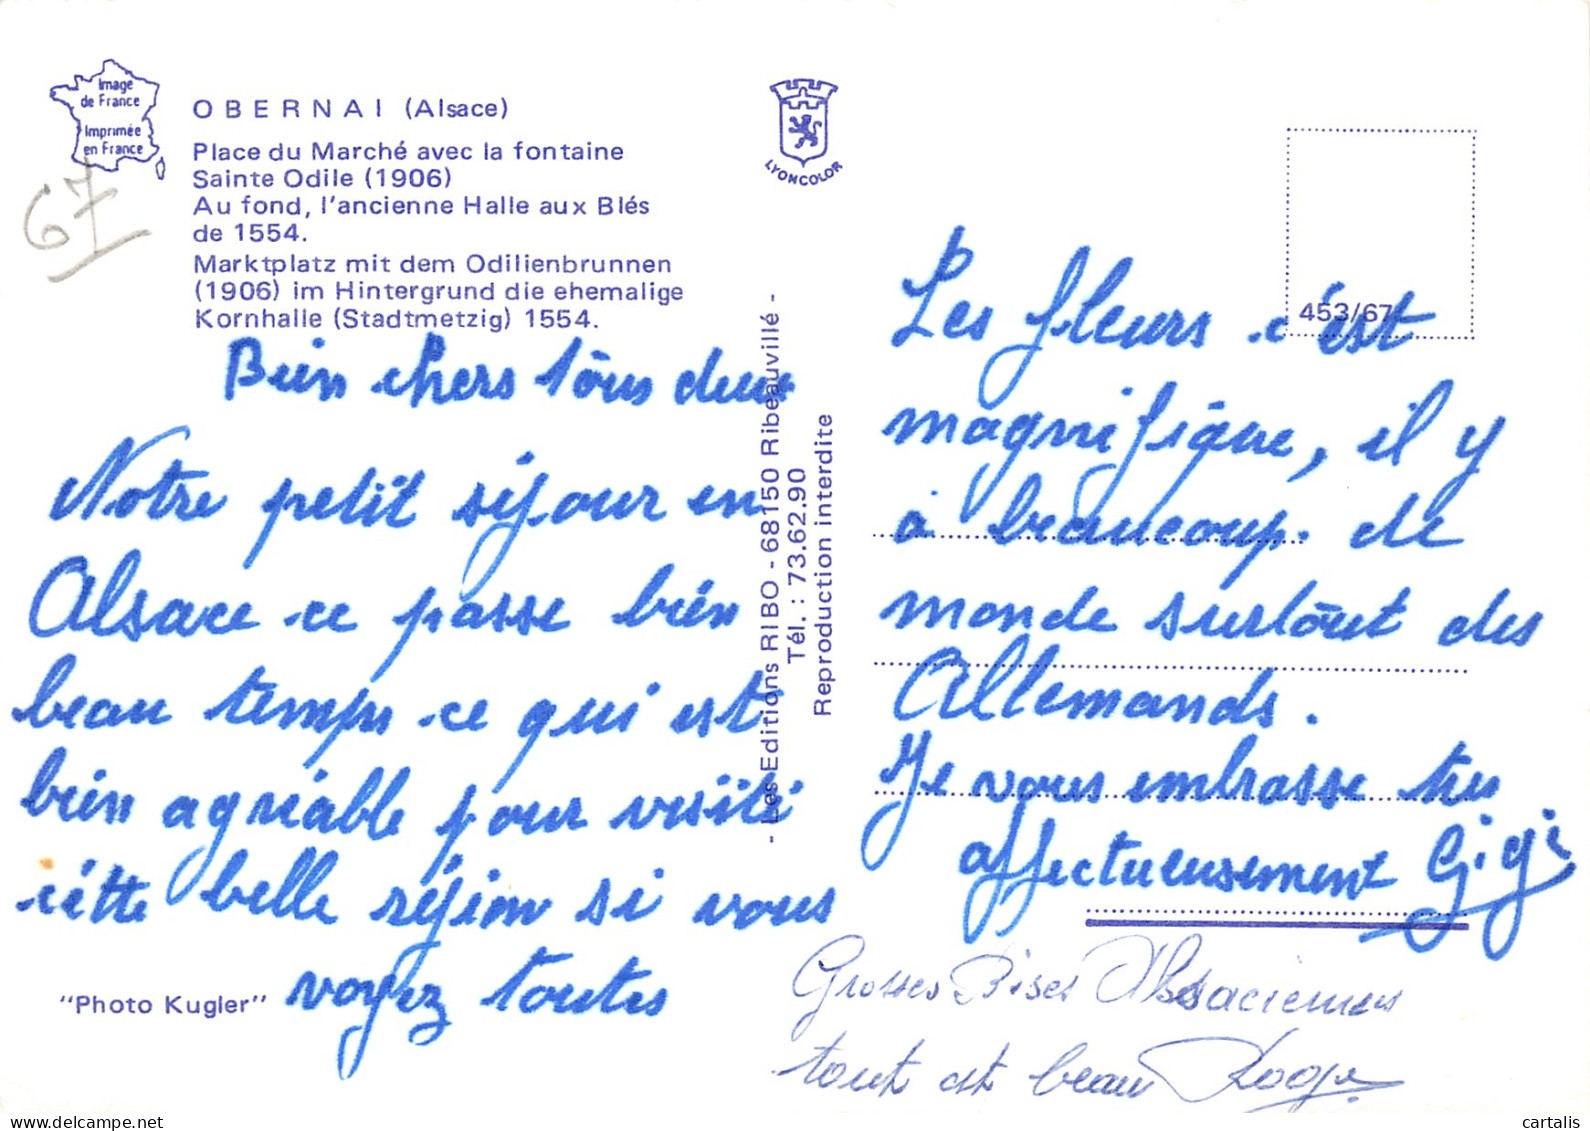 Image
de France
Imprimée
en France
67
OBERNAI (Alsace)
Place du Marché avec la fontaine
Sainte Odile (1906)
Au fond, l'ancienne Halle aux Blés
de 1554.
Marktplatz mit dem Odilienbrunnen
(1906) im Hintergrund die ehemalige
Kornhalle (Stadtmetzig) 1554.
LYONCOLOR
453/67
Bien chers tous deux
Notre petit séjour en
Alsace ce passe bien
beau temps ce qui est
bien agréable pour visiti
cétte belle réjion si vous
voyez toutes
"Photo Kugler"
- Les Editions RIBO - 68150 Ribeauvillé -
Tél. : 73.62.90
Reproduction interdite
Les fleurs c'est
magnifique, il y
à beaucoup. de
monde surtout des
Allemands.
Je vous embrasse très
affectueusement Gigi
Grosses Bises Alsaciennes
tout est beau Roger
cartalis